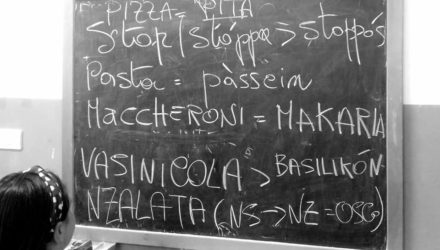 PIZZA = PITTA
Stop/stóppa > stoppós
Pasta = pàssein
MACCHERONI = MAKARIA
VASINICOLA > BASILIKÓN
NZALATA (NS → NZ = OSCO)